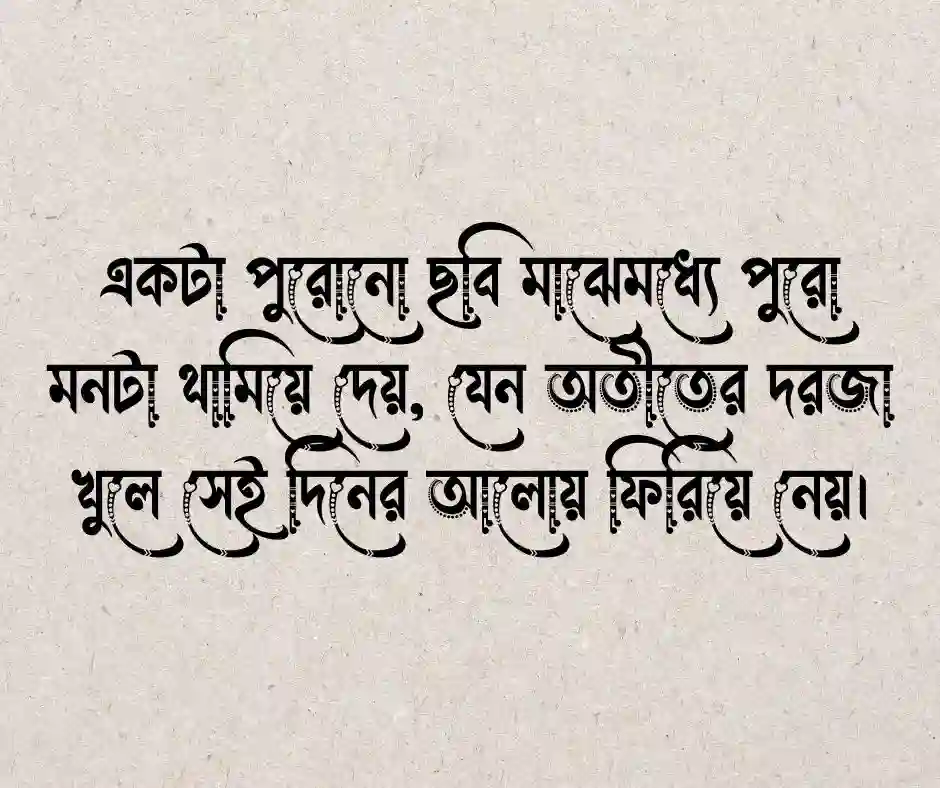 একটা পুরোনো ছবি মাঝেমধ্যে পুরো
মনটা থামিয়ে দেয়, যেন অতীতের দরজা
খুলে সেই দিনের আলোয় ফিরিয়ে নেয়।